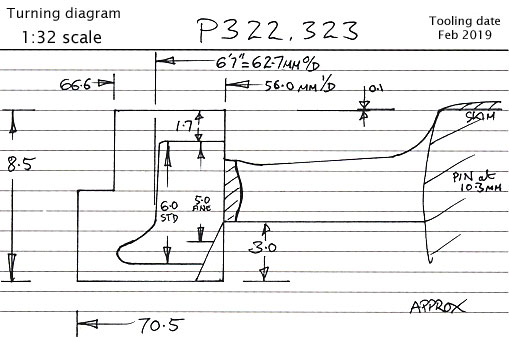 Turning diagram
1:32 scale
P322,323
Tooling date
Feb 2019
6'7"=62.7MM O/D
66.6
56.0 MM I/D
0.1
SKIM
1.7
8.5
6.0
STD
5.0
FINE
PIN at
10.3MM
3.0
70.5
APPROX